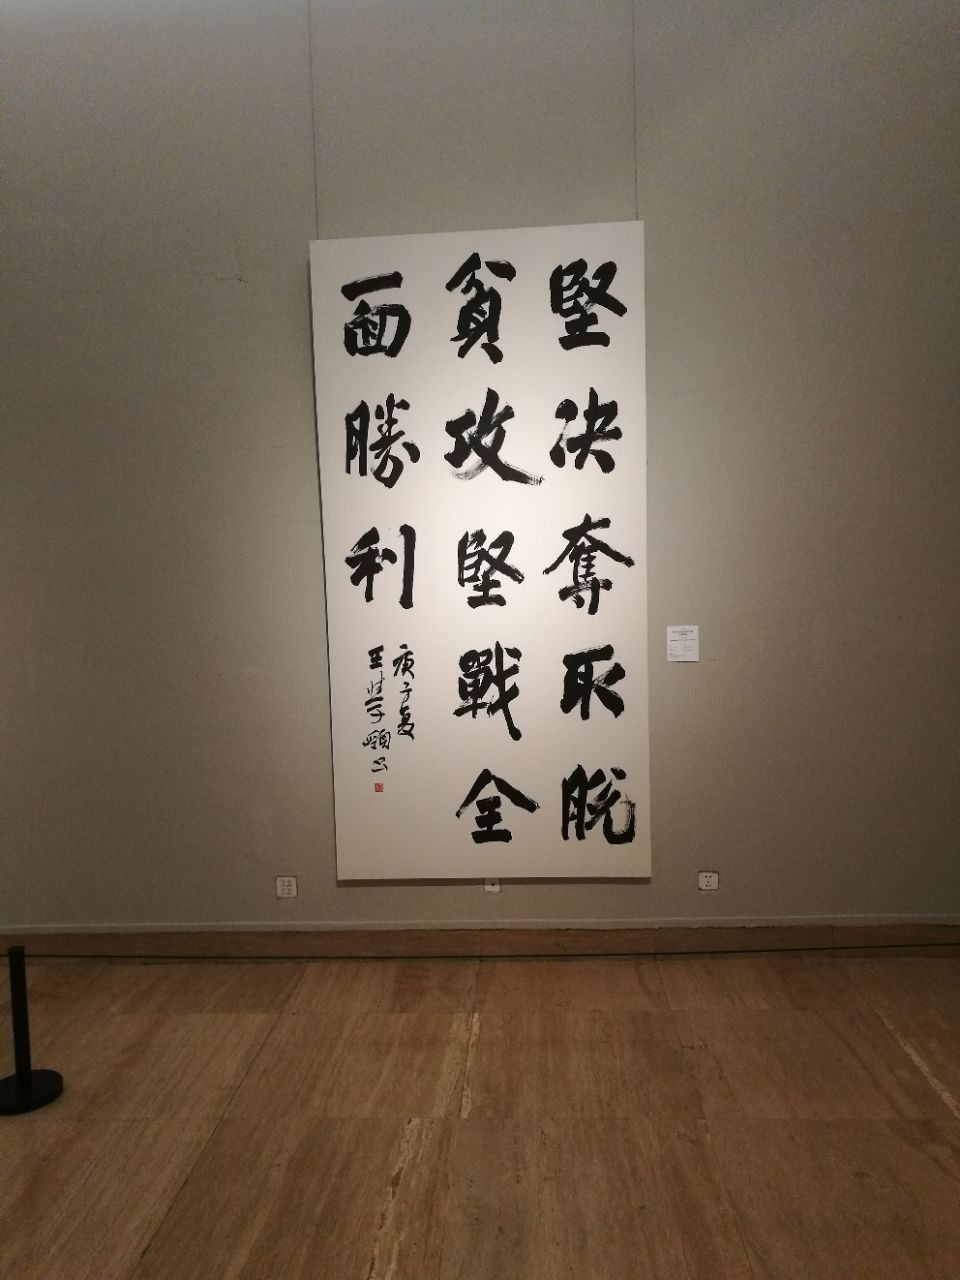 堅决奪取脱
貧攻堅戰全
面勝利
庚子夏
王